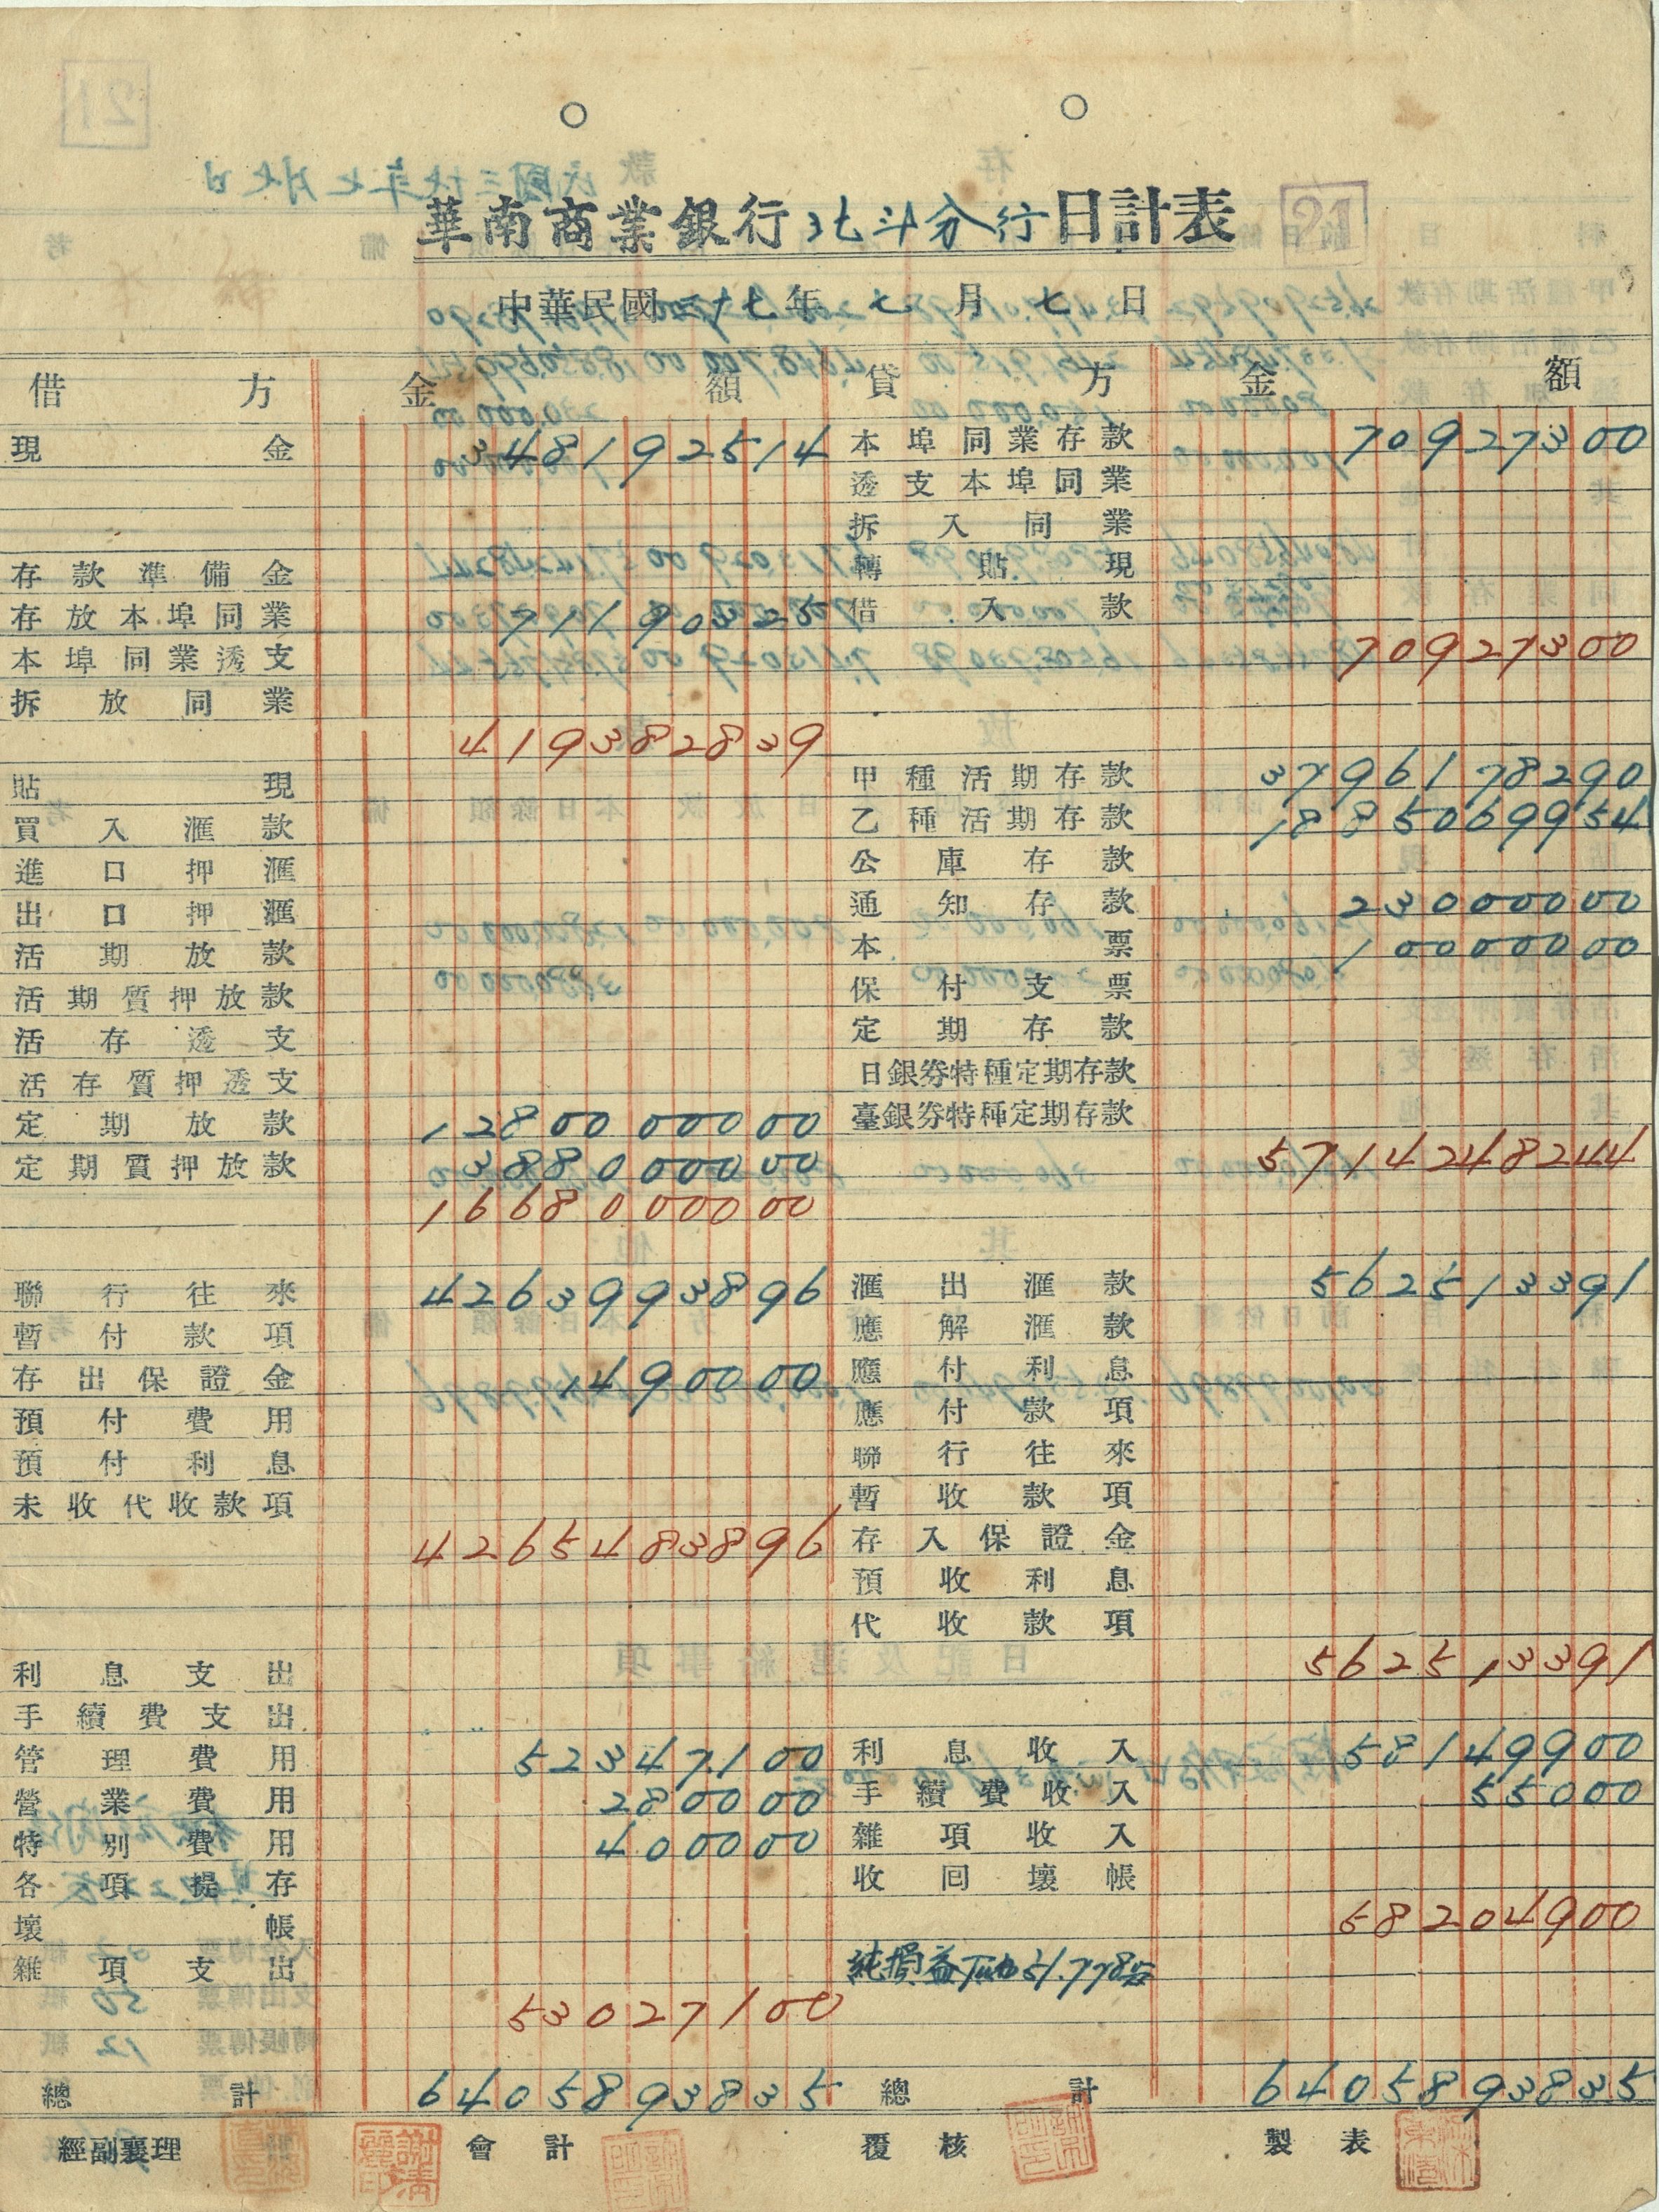 21
華南商業銀行北斗分行日計表
中華民國三十七年七月七日
借方 金額 貸方 金額
現金 348192514 本埠同業存款 70927300
透支本埠同業
拆入同業
存款準備金 轉貼現
存放本埠同業 71190325 借入款
本埠同業透支 70927300
拆放同業
419382839
貼現 甲種活期存款 3796178290
買入滙款 乙種活期存款 1885069954
進口押滙 公庫存款
出口押滙 通知存款 23000000
活期放款 本票 10000000
活期質押放款 保付支票
活存透支 定期存款
活存質押透支 日銀券特種定期存款
定期放款 1280000000 臺銀券特種定期存款
定期質押放款 388000000 5714248244
1668000000
聯行往來 4263993896 滙出滙款 562513391
暫付款項 應解滙款
存出保證金 1490000 應付利息
預付費用 應付款項
預付利息 聯行往來
未收代收款項 暫收款項
4265483896 存入保證金
預收利息
代收款項
利息支出 562513391
手續費支出
管理費用 52347100 利息收入 58149900
營業費用 280000 手續費收入 55000
特別費用 400000 雜項收入
各項提存 收回壞帳
壞帳 58204900
雜項支出 純損益 51.778
53027100
總計 6405893835 總計 6405893835
經副襄理 會計 覆核 製表